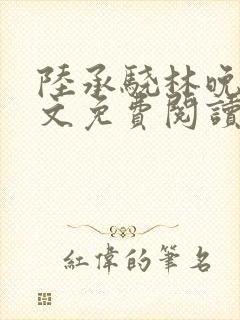 陸承驍林晚
文免費閱讀
紅偉的筆名